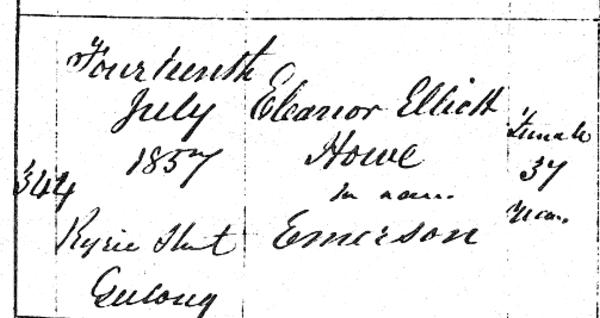 344
Fourteenth
July
1857
Ryrie Street
Geelong
Eleanor Elliott
Howe
Emerson
Female
37
years